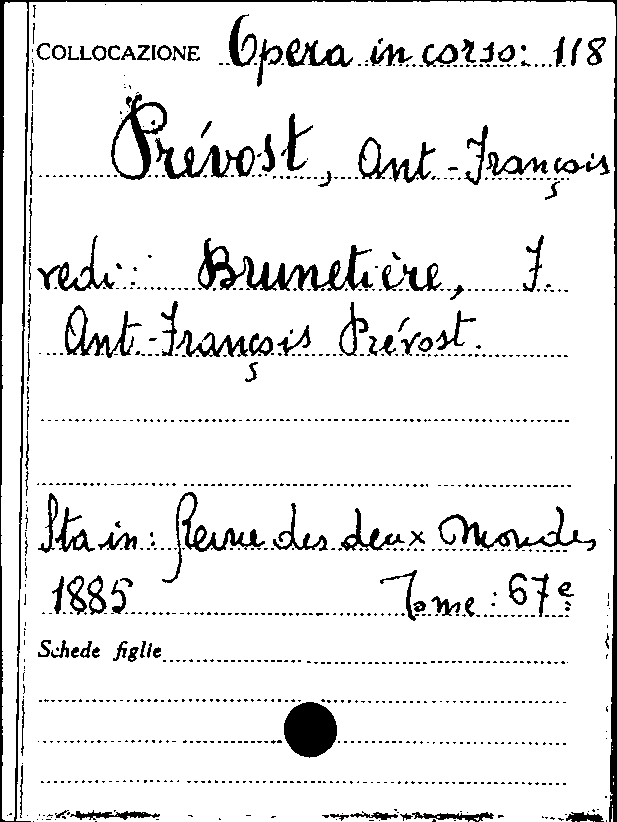 COLLOCAZIONE Opera in corso: 118
Prévost, Ant.-François
vedi: Brunetière, F.
Ant.-François Prévost.
Sta in: Revue des deux Mondes
1885 Tome: 67e
Schede figlie